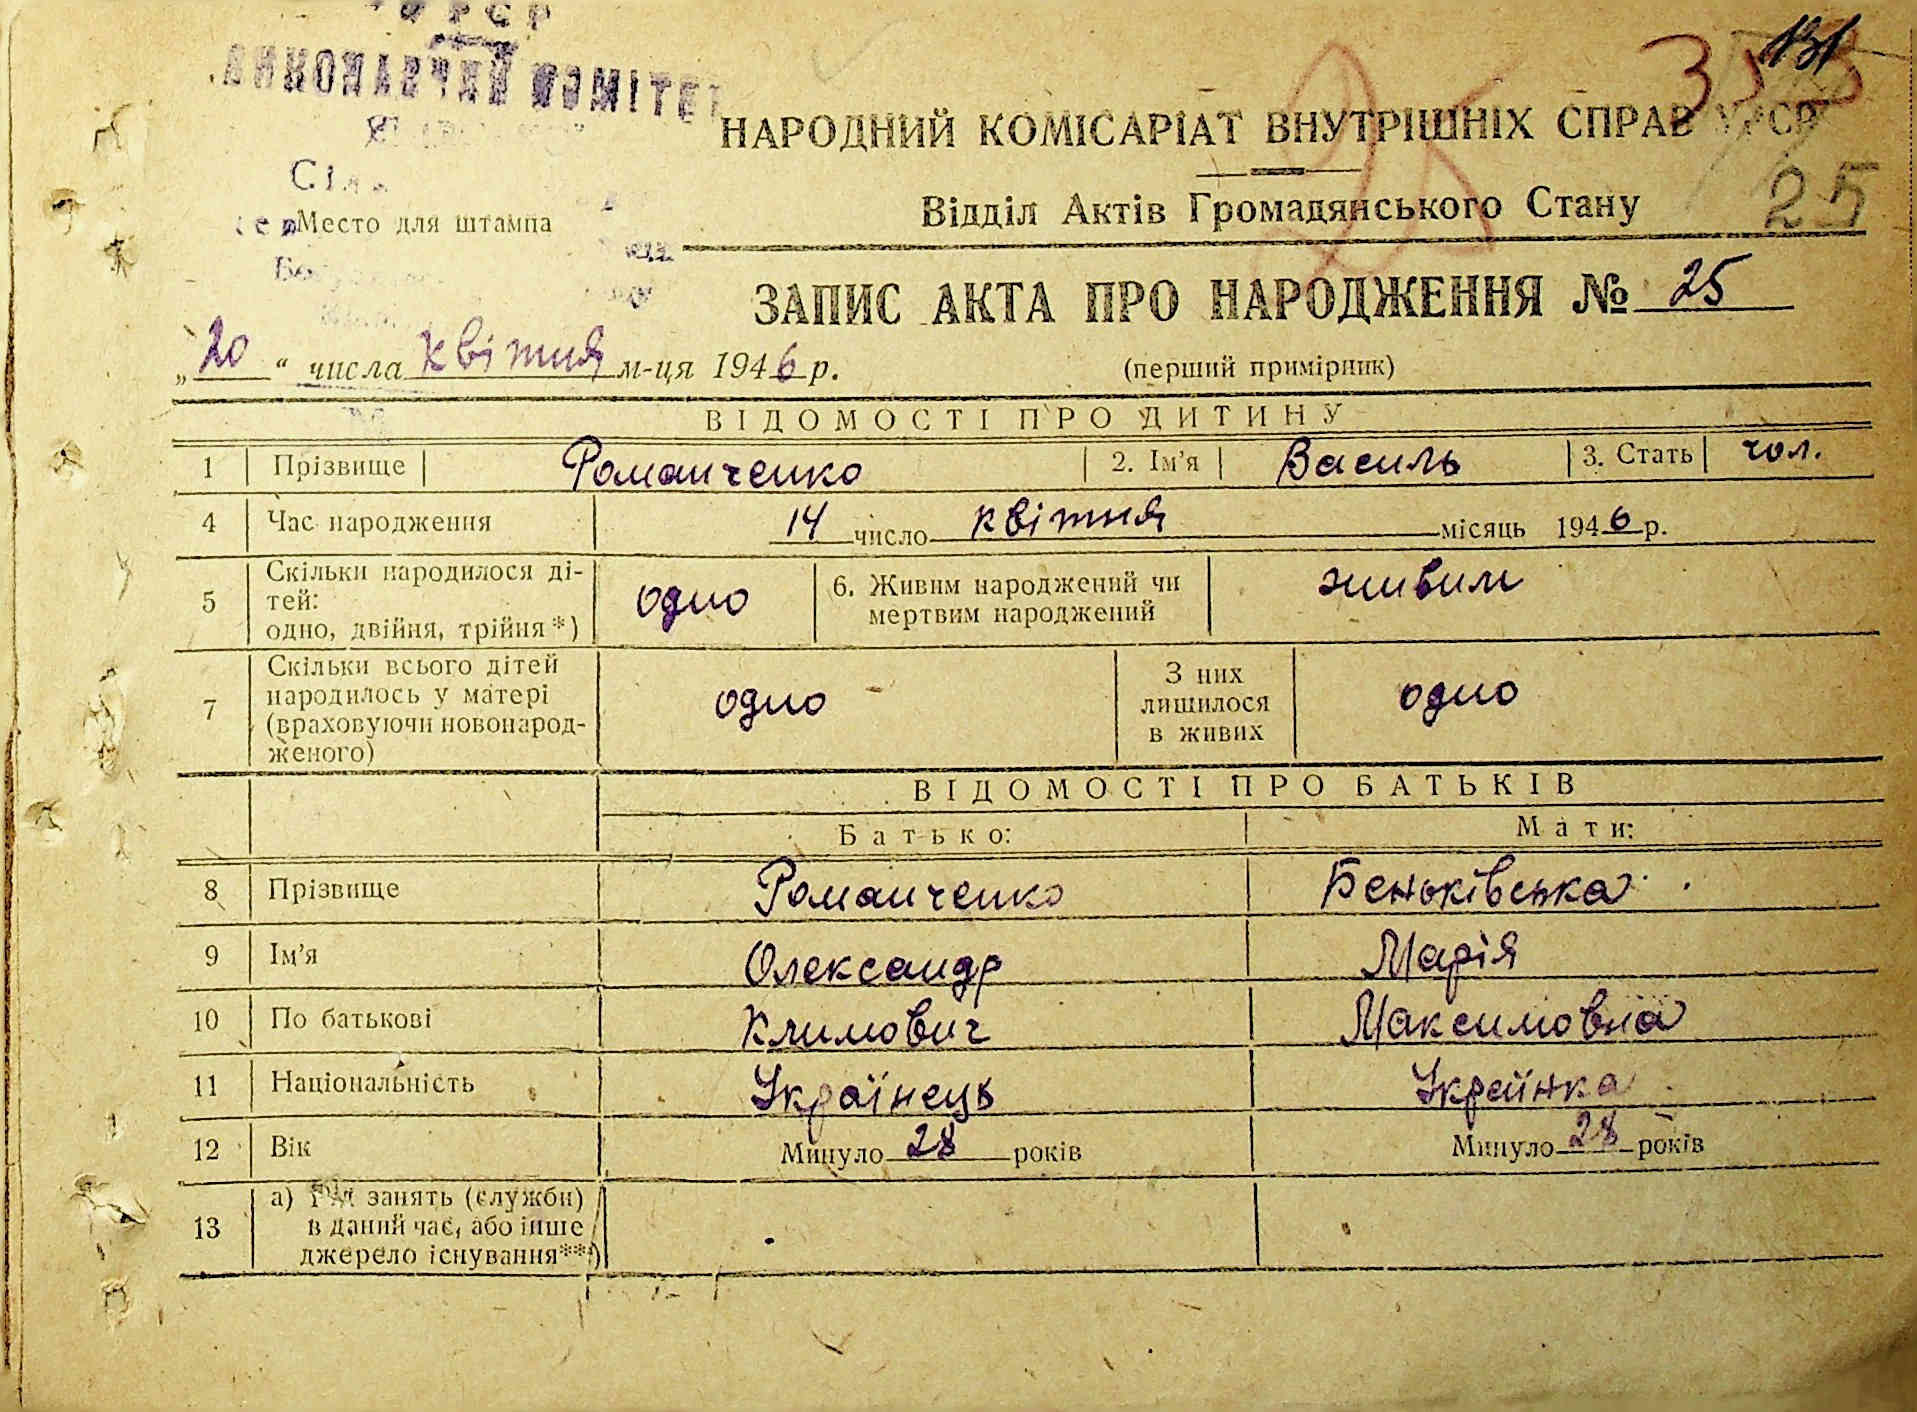 131
НАРОДНИЙ КОМІСАРІАТ ВНУТРІШНІХ СПРАВ УРСР
25
Відділ Актів Громадянського Стану
25
Место для штампа
ЗАПИС АКТА ПРО НАРОДЖЕННЯ № 25
„20“ числа квітня м-ця 1946 р.
(перший примірник)
ВІДОМОСТІ ПРО ДИТИНУ
1 Прізвище Романченко 2. Ім'я Василь 3. Стать чол.
4 Час народження 14 число квітня місяць 1946 р.
5 Скільки народилося ді-
тей:
одно, двійня, трійня*) одно 6. Живим народжений чи
мертвим народжений живим
7 Скільки всього дітей
народилось у матері
(враховуючи новонарод-
женого) одно З них
лишилося
в живих одно
ВІДОМОСТІ ПРО БАТЬКІВ
Батько: Мати:
8 Прізвище Романченко Беньківська
9 Ім'я Олександр Марія
10 По батькові Климович Максимовна
11 Національність Українець Українка
12 Вік Минуло 28 років Минуло 28 років
13 а) занять (служби)
в даний час, або інше
джерело існування**)